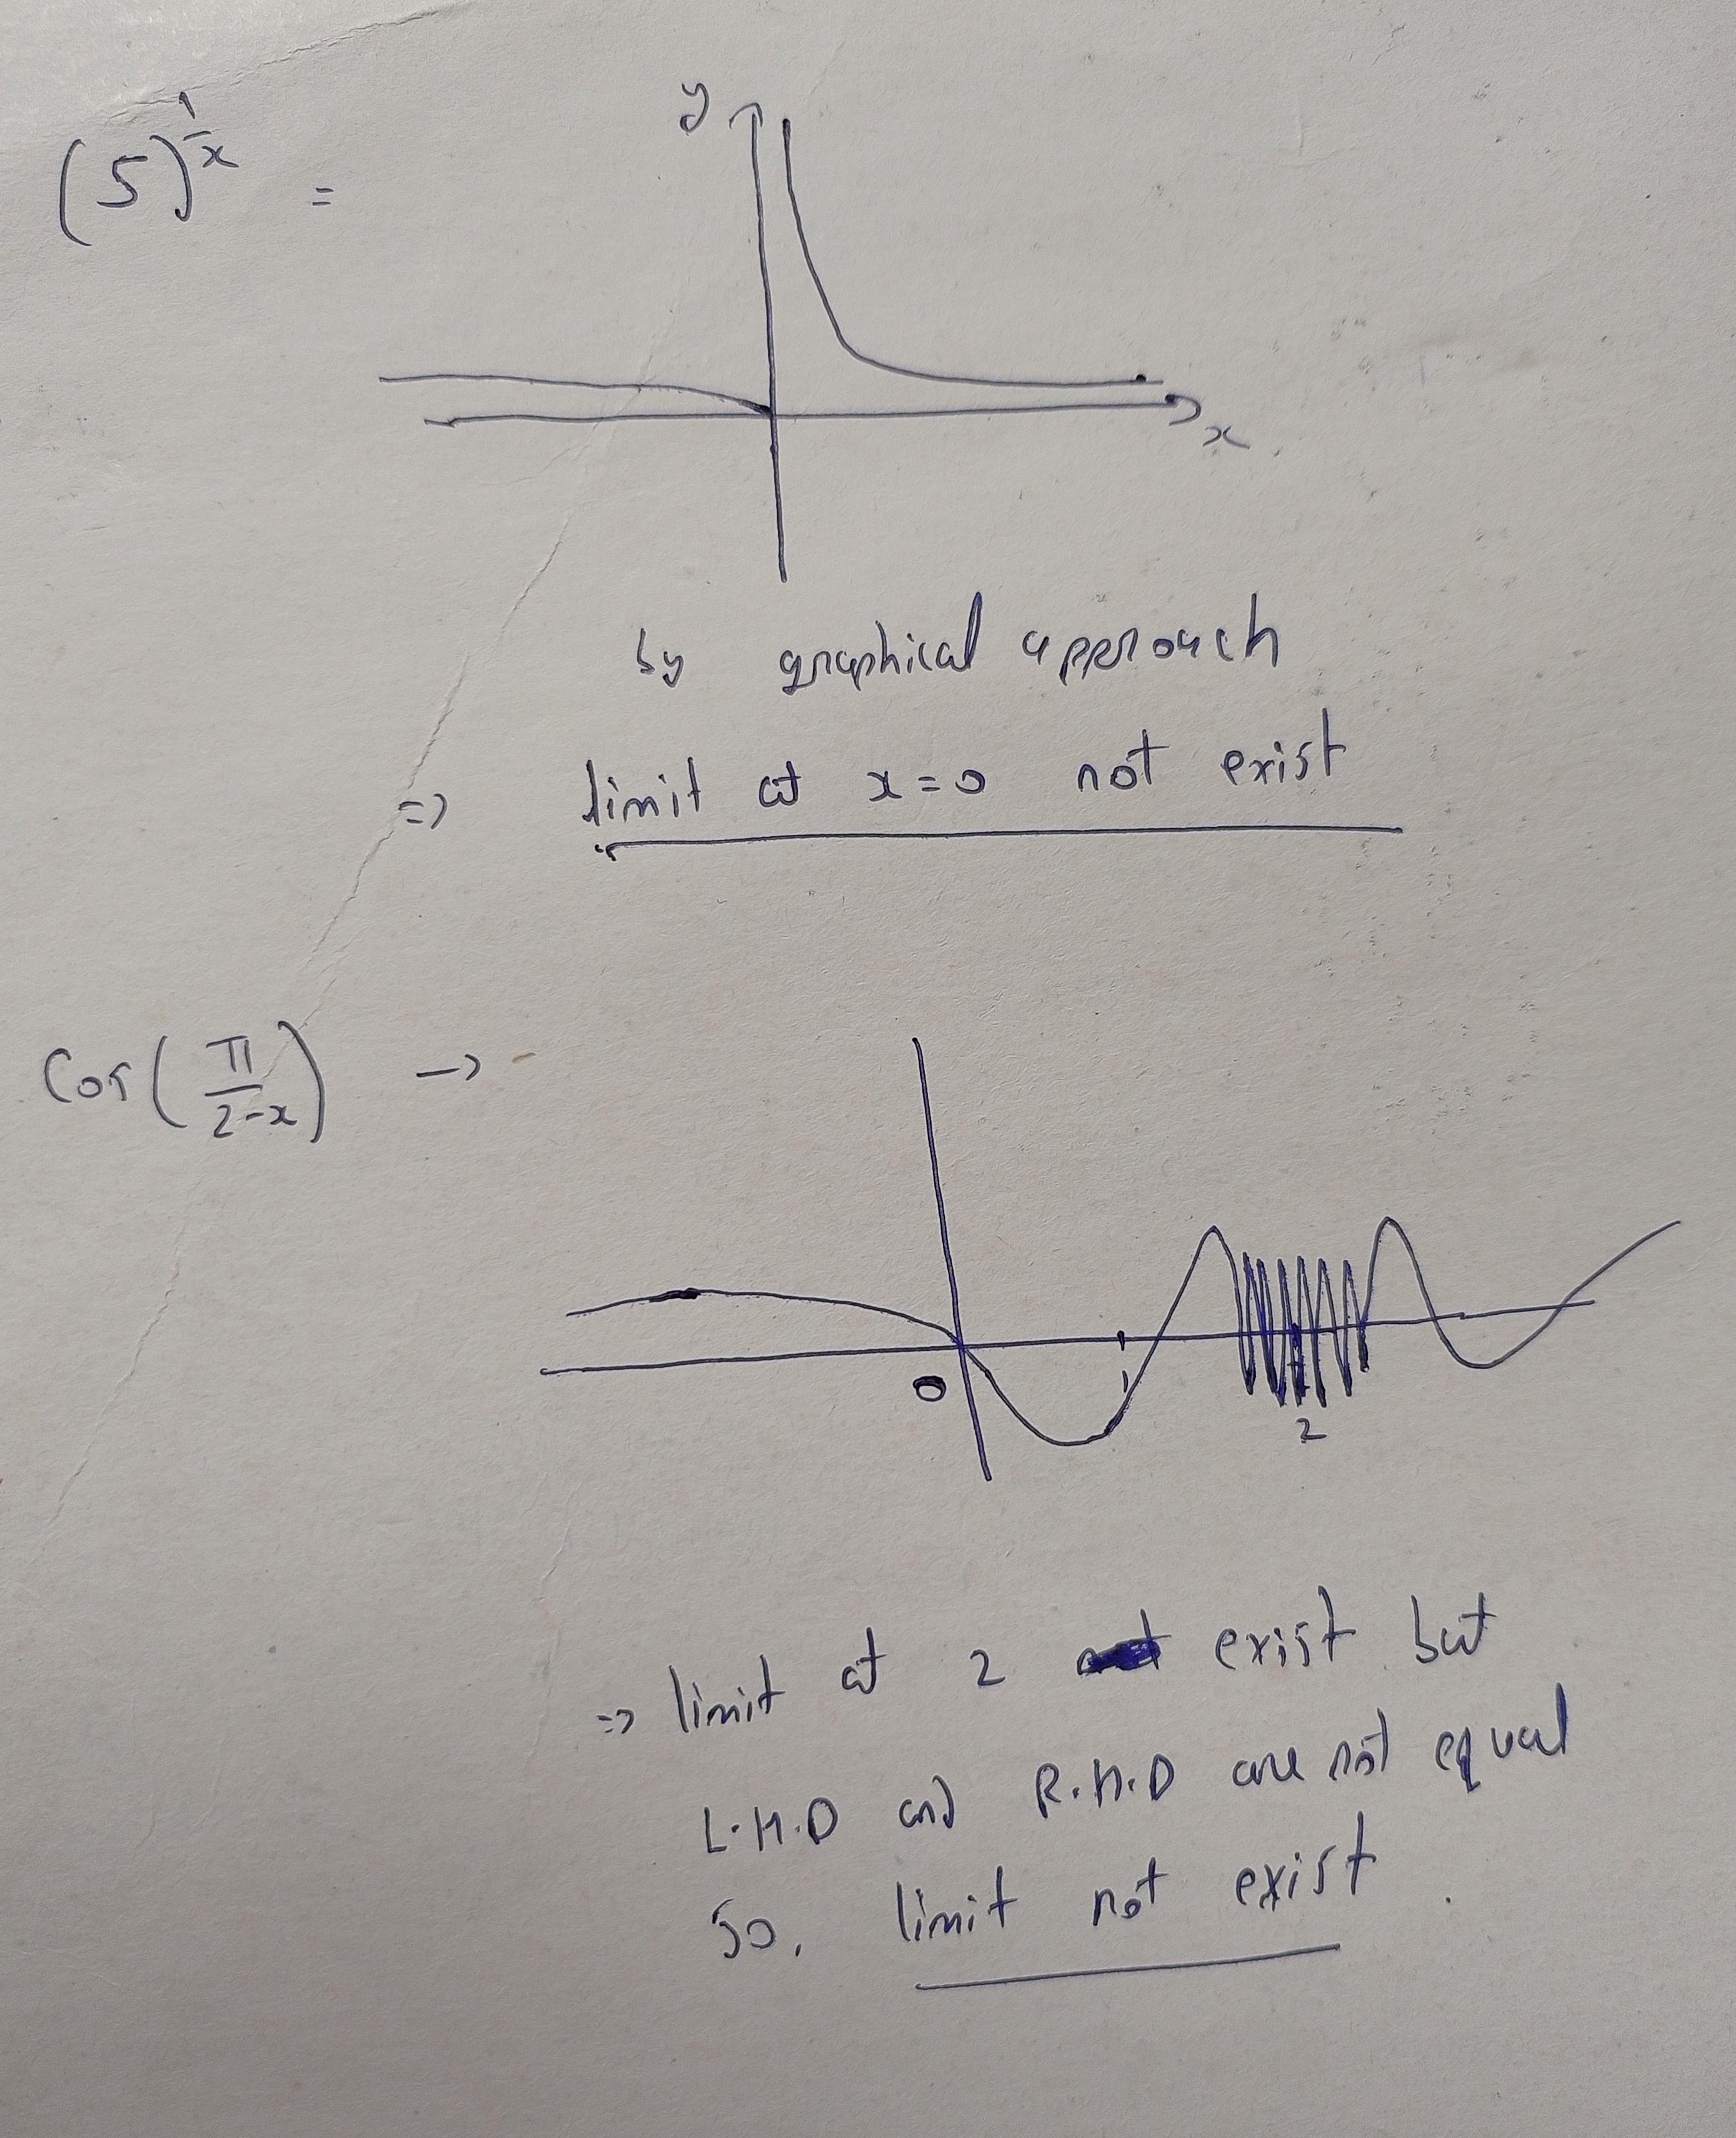 (5)^{1/x} =
y
x
by graphical approach
=> limit at x=0 not exist
Cos(π/(2-x)) →
0
1
2
=> limit at 2 exist but
L.H.D and R.H.D are not equal
So, limit not exist.